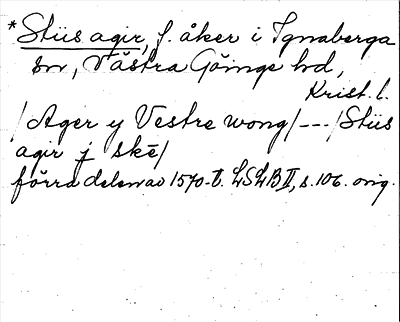 *Stiis agir, f. åker i Ignaberga
sn, Västra Göinge hd,
Krist. l.
/Ager y Vestre wong/---/Stiis
agir j skē/
förra delen av 1570-t. LSLB II, s. 106. orig.